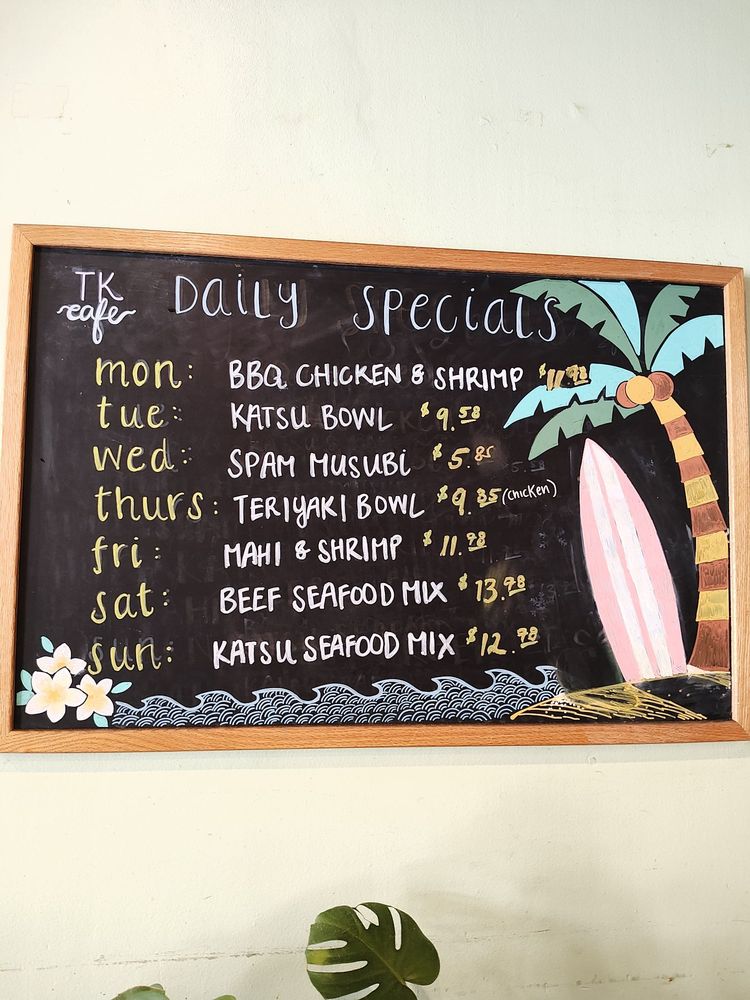 TK
cafe
Daily Specials
mon: BBQ CHICKEN & SHRIMP $11.98
tue: KATSU BOWL $9.58
wed: SPAM MUSUBI $5.85
thurs: TERIYAKI BOWL $9.85 (chicken)
fri: MAHI & SHRIMP $11.98
sat: BEEF SEAFOOD MIX $13.98
sun: KATSU SEAFOOD MIX $12.98